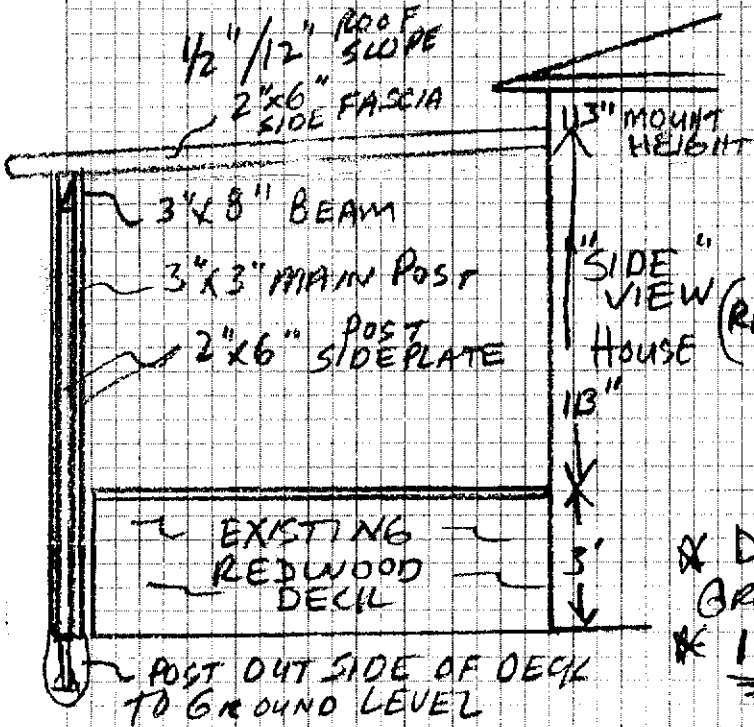 1/2"/12" ROOF
SLOPE
2"x6"
SIDE FASCIA
113" MOUNT
HEIGHT
3"x8" BEAM
3"x3" MAIN POST
2"x6" POST
SIDEPLATE
"SIDE"
VIEW
HOUSE
113"
EXISTING
REDWOOD
DECK
3'
POST OUT SIDE OF DECK
TO GROUND LEVEL